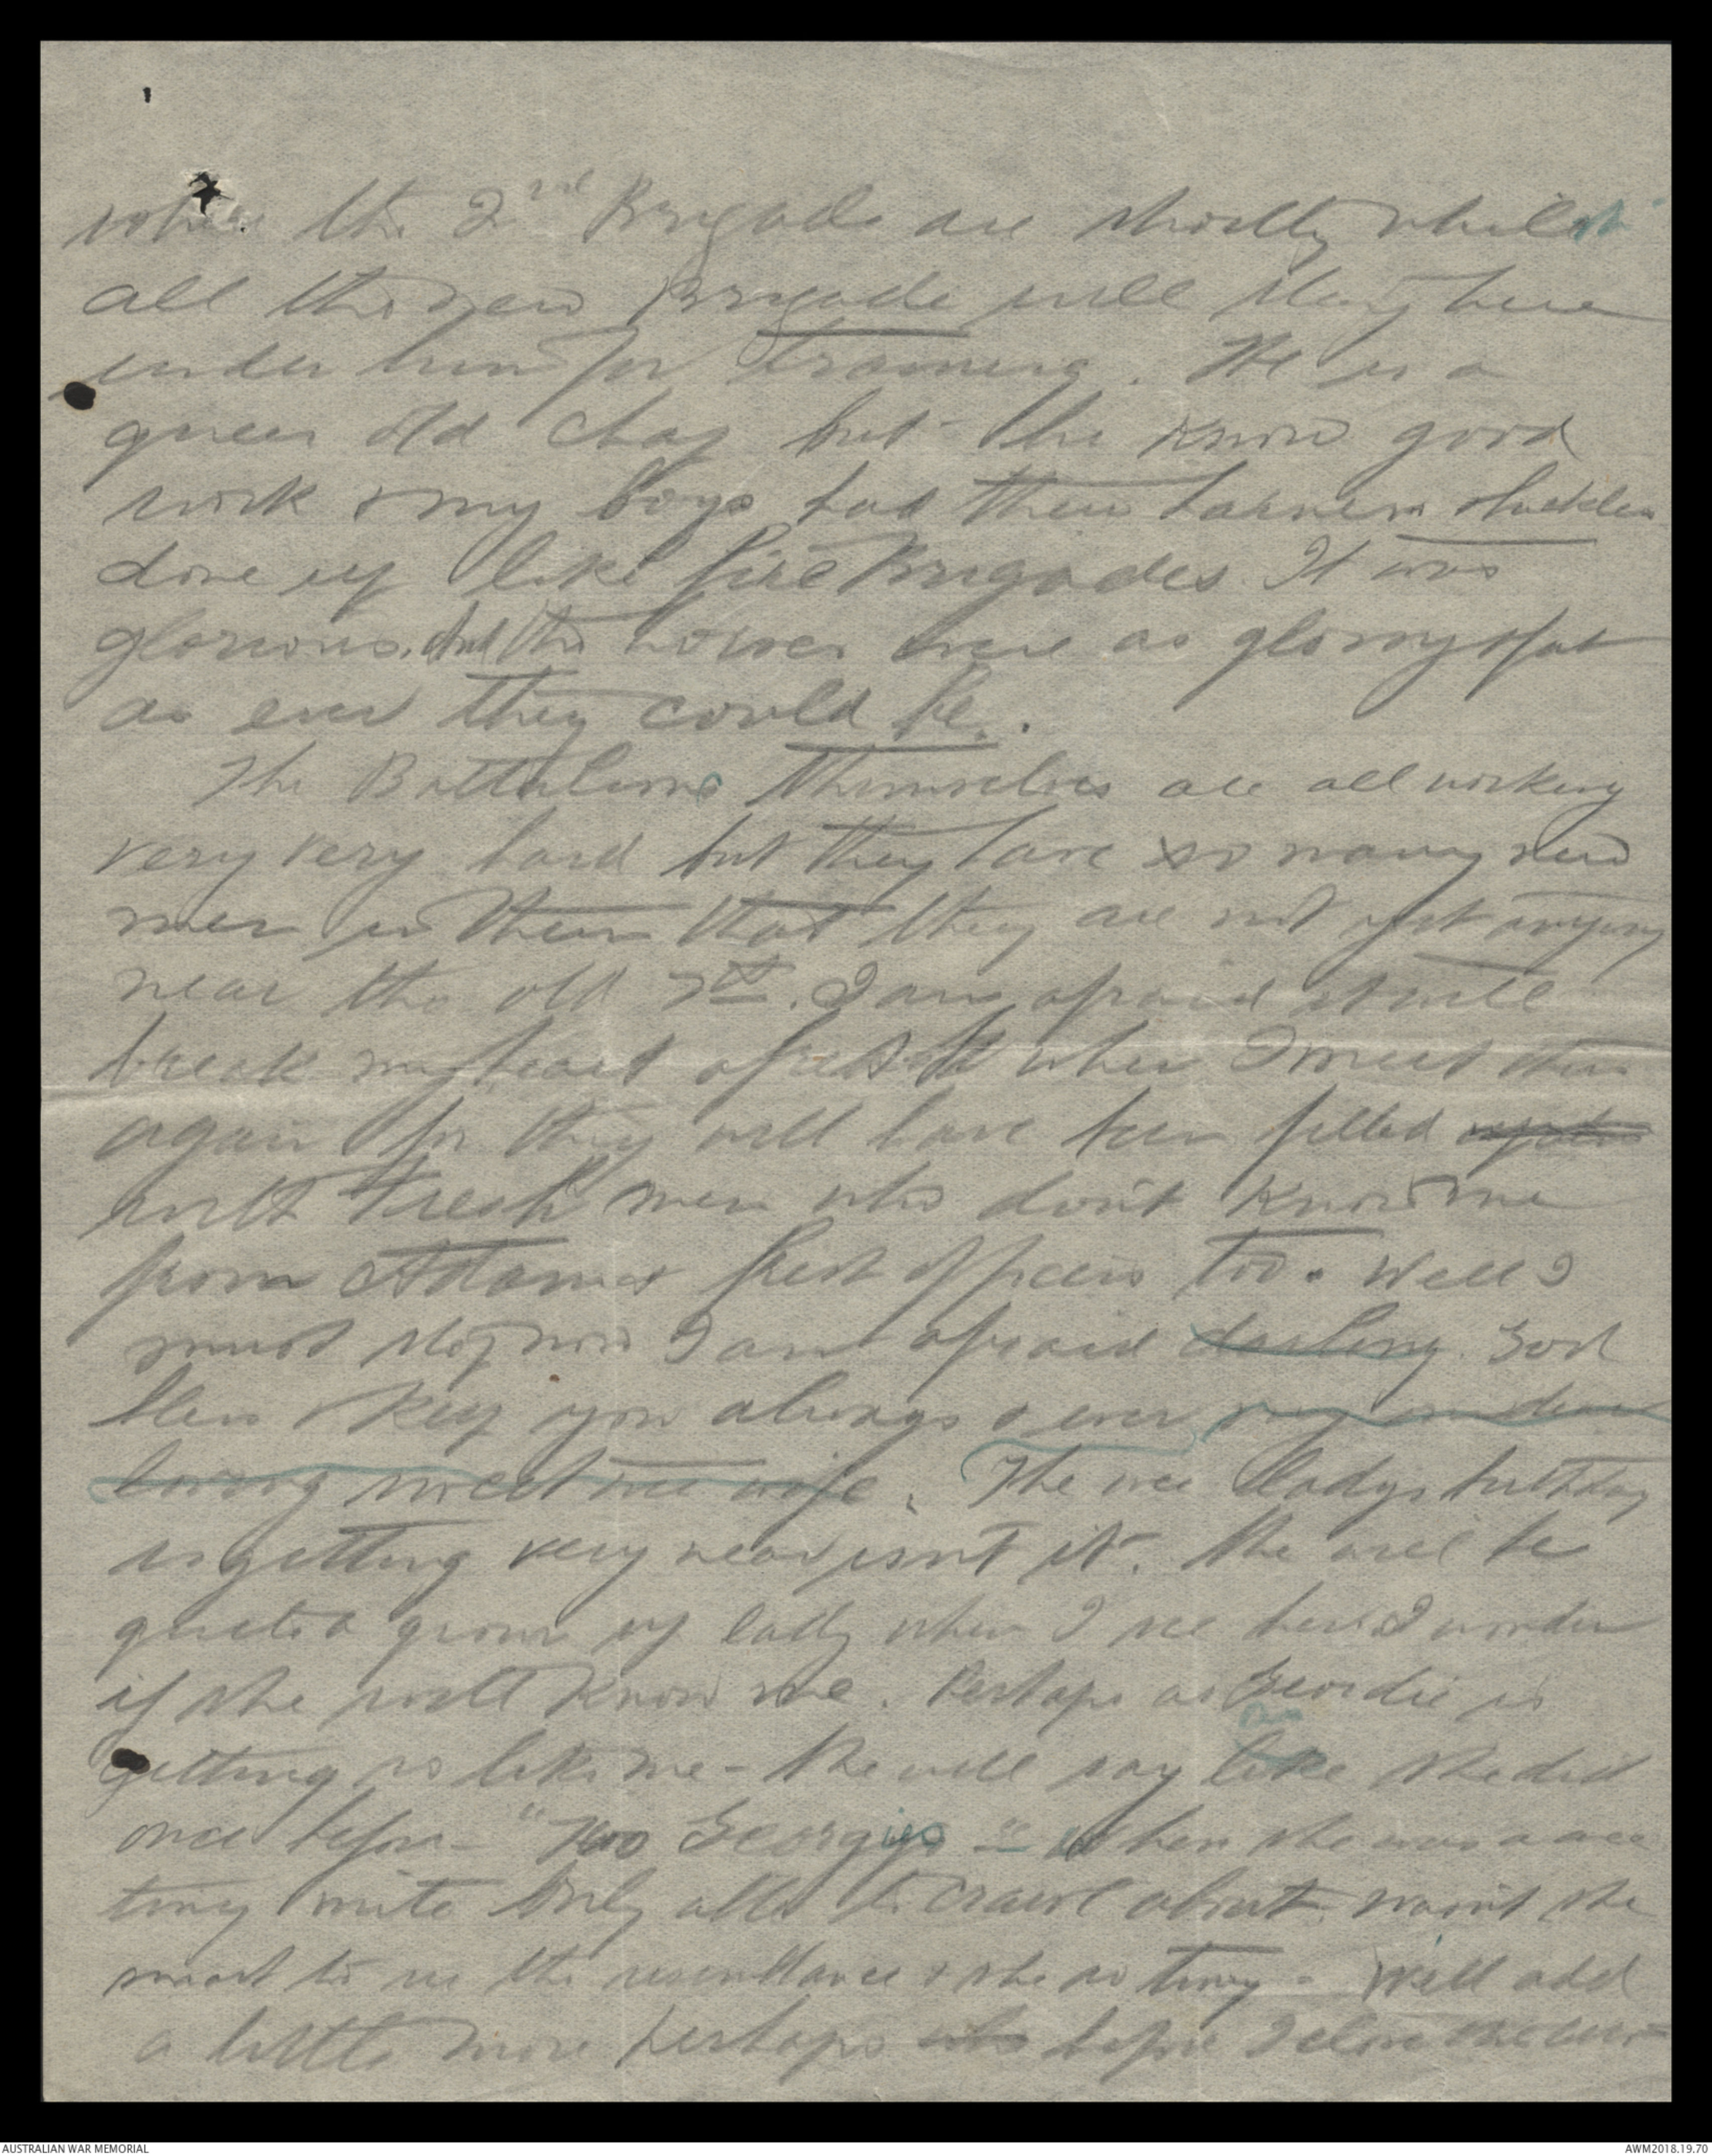 where the 2nd Brigade are shortly whilst
all the new Brigade will stay here
under him for training. He is a
queer old chap but he know good
work & my boys had their harness & buckles
done up like fire Brigades. It was
glorious. And the horses were as glossy & fat
as ever they could be.
The Battalions themselves are all working
very very hard but they have so many new
men in them that they are not yet anyway
near the old 7th. I am afraid it will
break my heart afresh when I meet them
again for they will have been filled
with fresh men who don't know me
from Adam & fresh officers too. Well I
must stop now I am afraid darling. God
bless & keep you always & ever my own dear
loving sweet wee wife. The wee lady's birthday
is getting very near isn't it. She will be
quite a grown up lady when I see her. I wonder
if she will know me. Perhaps as Geordie is
getting so like me - she will say like she did
as
once before - "Two Georgies" - when she was a wee
tiny mite only able to crawl about. Wasn't she
smart to see the resemblance & she so tiny - Will add
a little more perhaps before I close
AUSTRALIAN WAR MEMORIAL
AWM2018.19.70